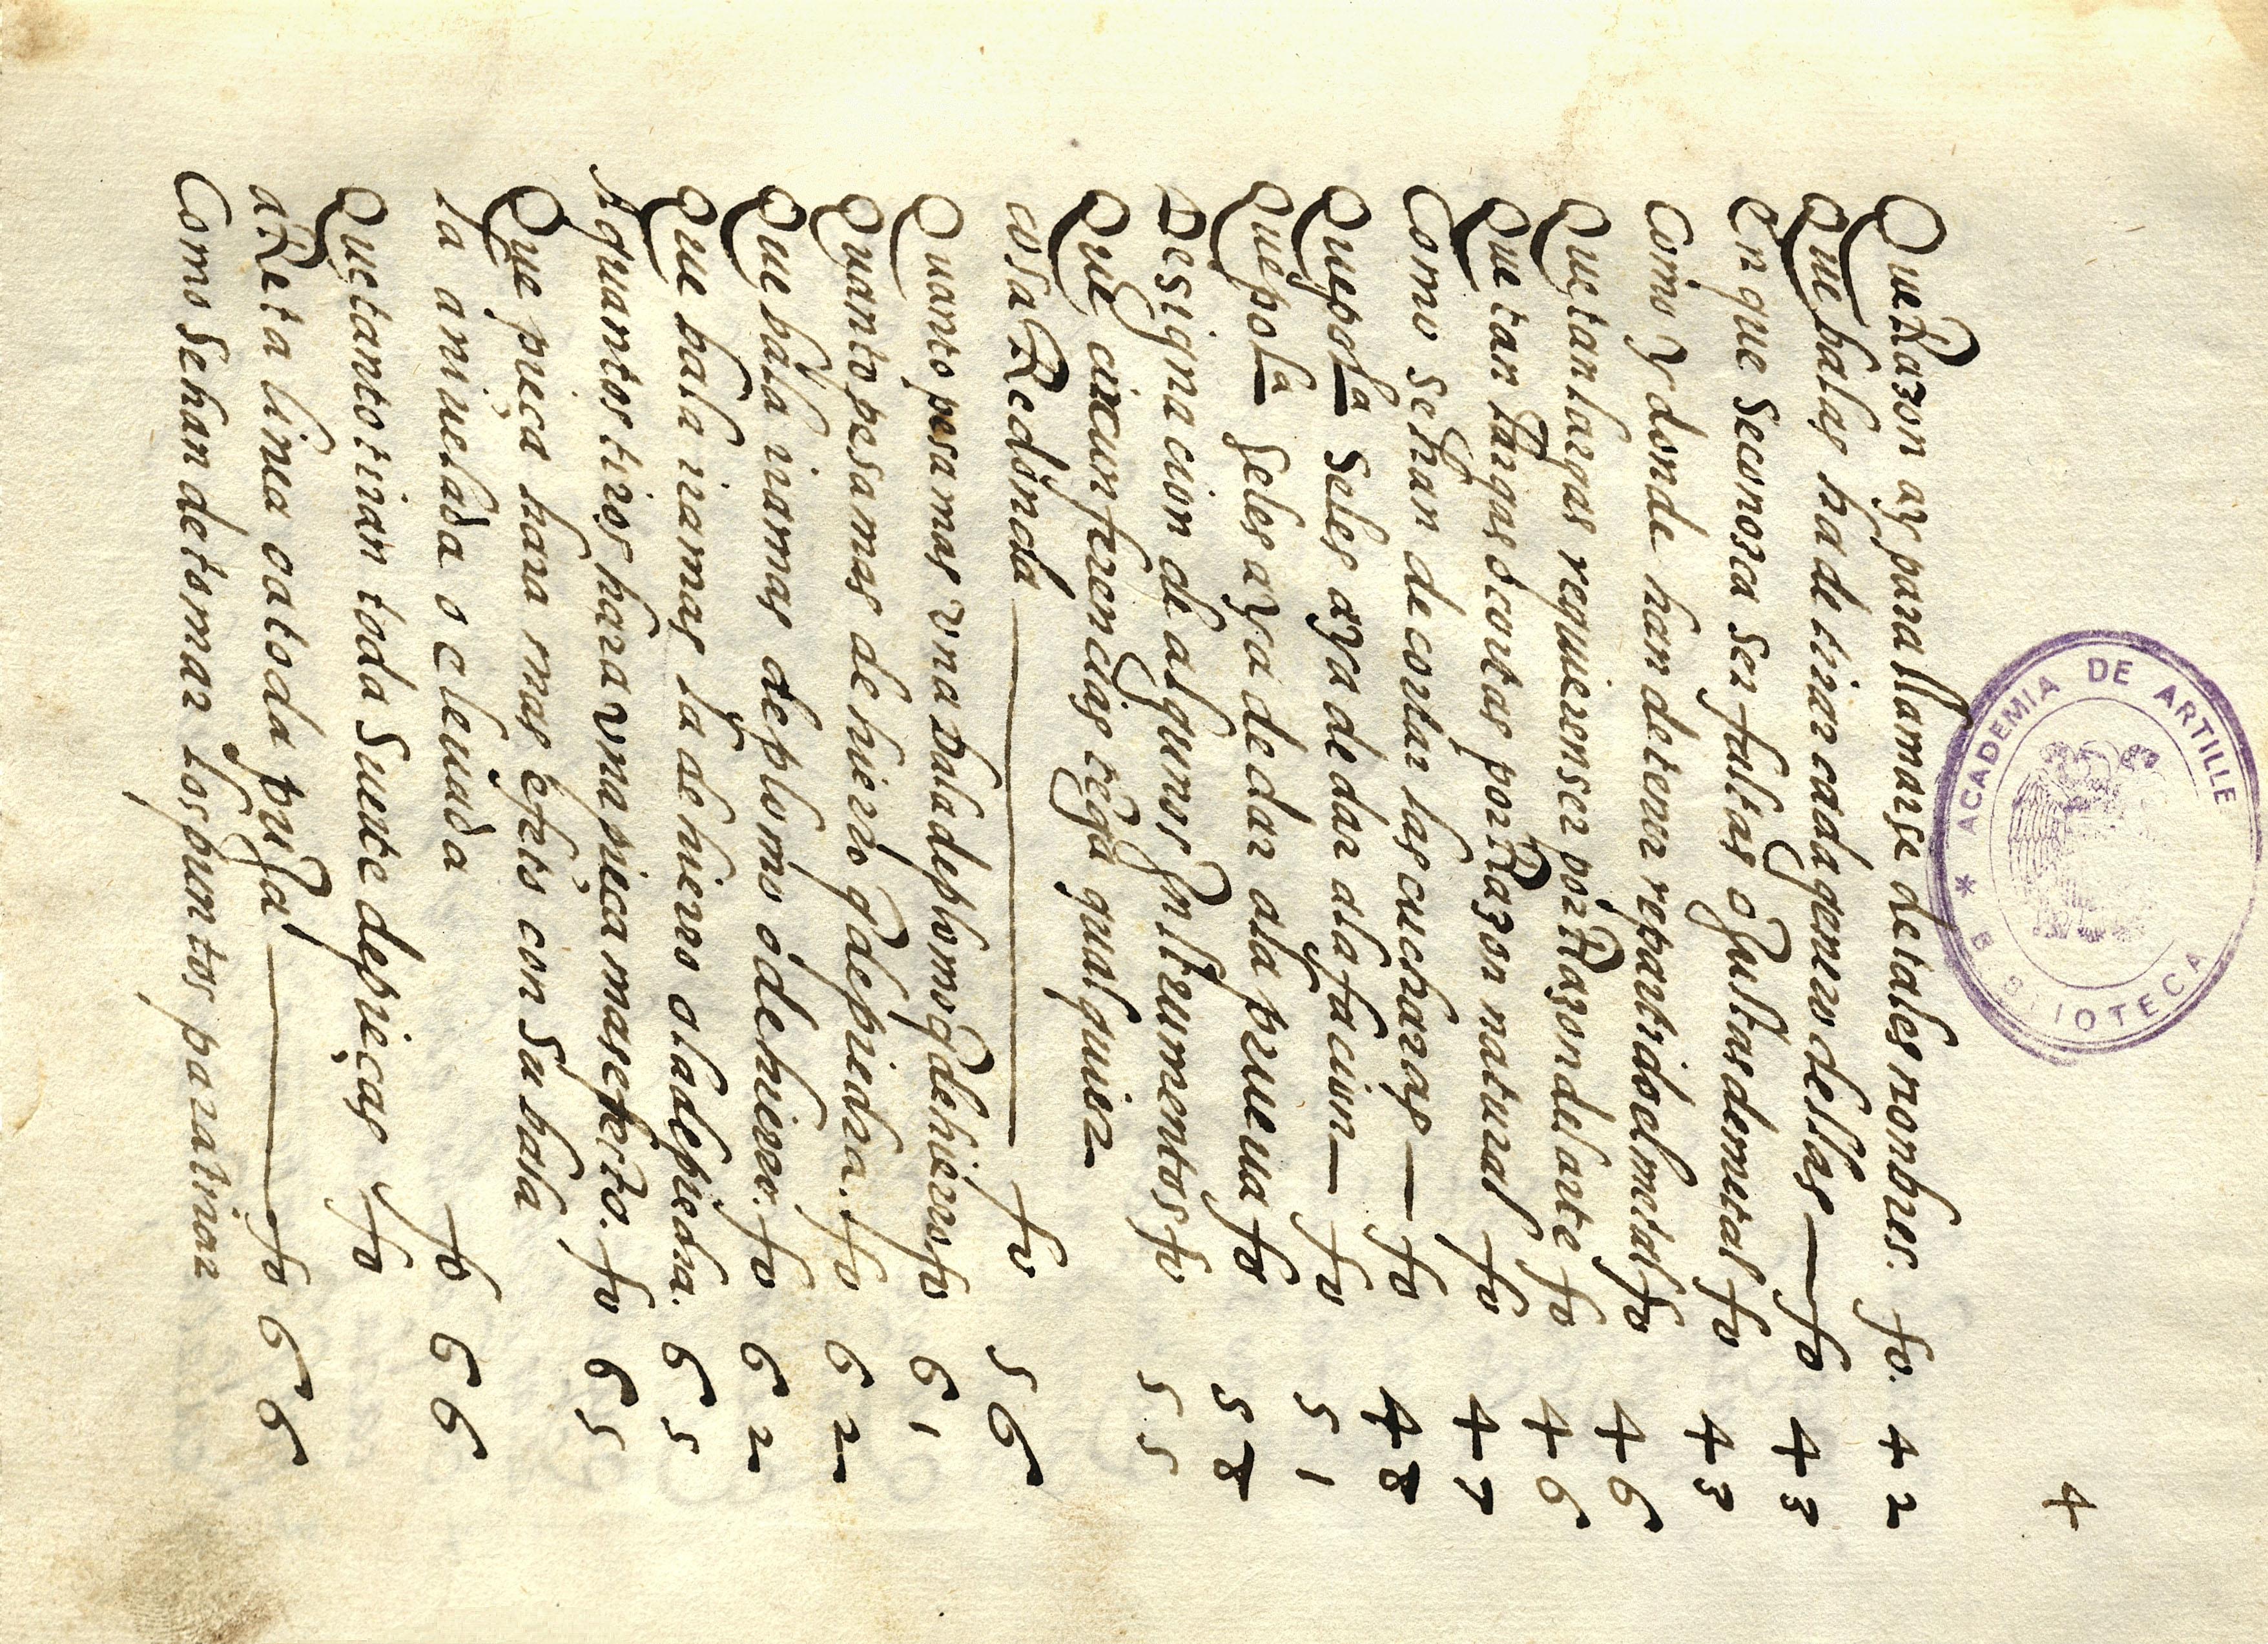 4
ACADEMIA DE ARTILLE
* BIBLIOTECA
Que Razon ay para llamarse de tales nombres. fo. 42
Que balas ha de tirar cada genero dellas — fo 43
En que se conosca ser faltas o gustas de metal fo 43
Como y donde han de tener repartido el metal fo 46
Que tan largas requieren ser por Razon del arte fo 46
Que tan largas o cortas por Razon natural fo 47
Como se han de cortar las cucharas — fo 48
Que pol.a se les aya de dar a la facion — fo 51
Que pol.a se les aya de dar a la prueua fo 58
Designacion de algunos Instrumentos fo 55
Que circunferencias tega qualquier
cosa Redonda — fo 56
Quanto pesa mas vna bala de plomo q de hierro fo 61
Quanto pesa mas de hierro q de piedra. fo 62
Que bala ira mas de plomo o de hierro. fo 62
Que bala ira mas la de hierro o la de piedra. 65
i quantos tiros hara vna pieça mas efecto. fo 65
Que pieça hara mas efeto con su bala
la aniuelada o eleuada fo 66
Que tanto tiran toda suerte de pieças fo
a Reta linea o a toda — fo 66
Como se han de tomar los puntos para tirar